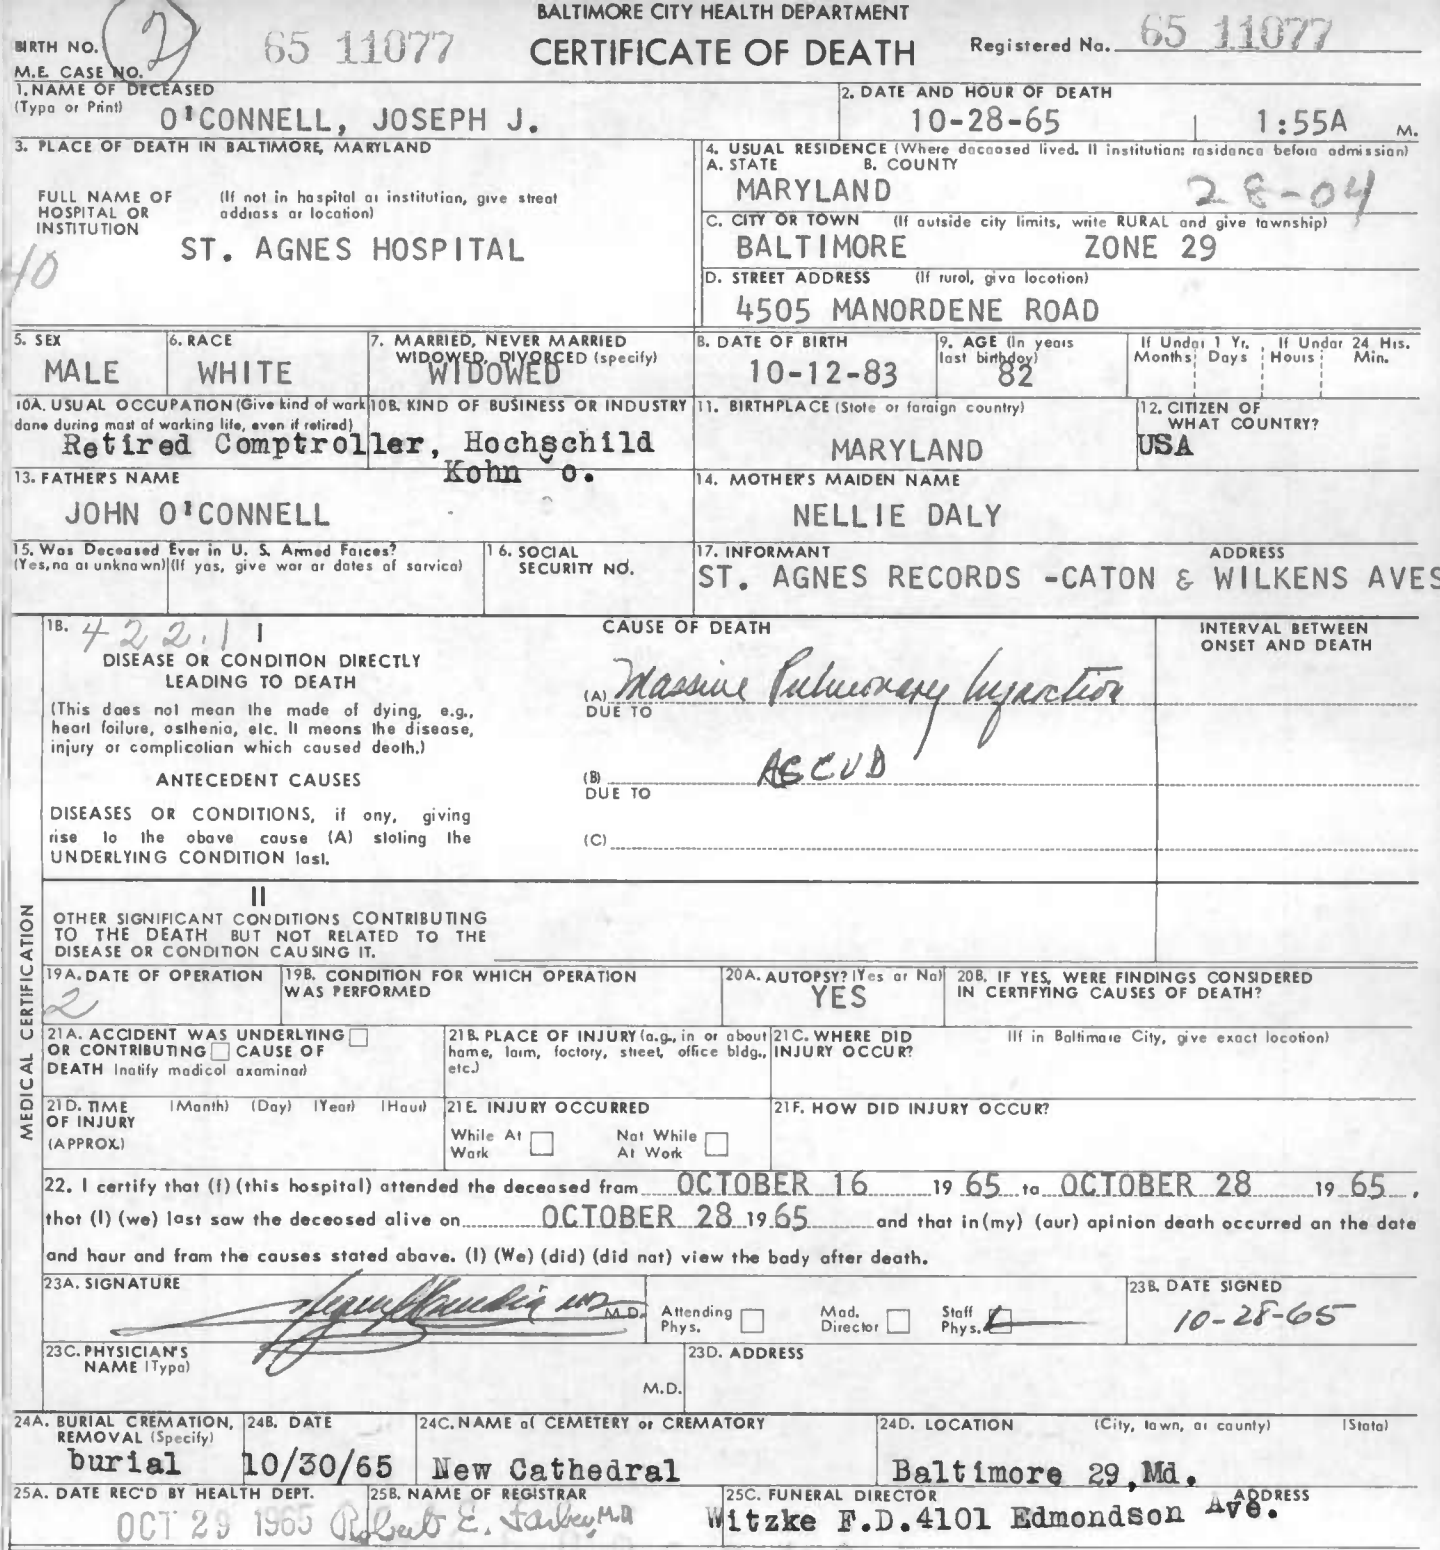 BALTIMORE CITY HEALTH DEPARTMENT
BIRTH NO. 2 65 11077 CERTIFICATE OF DEATH Registered No. 65 11077
M.E. CASE NO.
1. NAME OF DECEASED
(Type or Print) O'CONNELL, JOSEPH J.
2. DATE AND HOUR OF DEATH
10-28-65 1:55A M.
3. PLACE OF DEATH IN BALTIMORE, MARYLAND
FULL NAME OF HOSPITAL OR INSTITUTION
(If not in hospital or institution, give street address or location)
ST. AGNES HOSPITAL
40
4. USUAL RESIDENCE (Where deceased lived. If institution: residence before admission)
A. STATE B. COUNTY
MARYLAND 28-04
C. CITY OR TOWN (If outside city limits, write RURAL and give township)
BALTIMORE ZONE 29
D. STREET ADDRESS (If rural, give location)
4505 MANORDENE ROAD
5. SEX
MALE
6. RACE
WHITE
7. MARRIED, NEVER MARRIED
WIDOWED, DIVORCED (specify)
WIDOWED
8. DATE OF BIRTH
10-12-83
9. AGE (In years
last birthday)
82
If Under 1 Yr. If Under 24 Hrs.
Months Days Hours Min.
10A. USUAL OCCUPATION (Give kind of work
done during most of working life, even if retired)
10B. KIND OF BUSINESS OR INDUSTRY
Retired Comptroller, Hochschild
Kohn Co.
11. BIRTHPLACE (State or foreign country)
MARYLAND
12. CITIZEN OF
WHAT COUNTRY?
USA
13. FATHER'S NAME
JOHN O'CONNELL
14. MOTHER'S MAIDEN NAME
NELLIE DALY
15. Was Deceased Ever in U. S. Armed Forces?
(Yes, no or unknown) (If yes, give war or dates of service)
16. SOCIAL
SECURITY NO.
17. INFORMANT ADDRESS
ST. AGNES RECORDS -CATON & WILKENS AVES
MEDICAL CERTIFICATION
18. 422.1 I
DISEASE OR CONDITION DIRECTLY
LEADING TO DEATH
(This does not mean the mode of dying, e.g.,
heart failure, asthenia, etc. It means the disease,
injury or complication which caused death.)
ANTECEDENT CAUSES
DISEASES OR CONDITIONS, if any, giving
rise to the above cause (A) stating the
UNDERLYING CONDITION last.
CAUSE OF DEATH
(A) Massive Pulmonary Infarction
DUE TO
(B) ASCVD
DUE TO
(C)
INTERVAL BETWEEN
ONSET AND DEATH
II
OTHER SIGNIFICANT CONDITIONS CONTRIBUTING
TO THE DEATH BUT NOT RELATED TO THE
DISEASE OR CONDITION CAUSING IT.
19A. DATE OF OPERATION
2
19B. CONDITION FOR WHICH OPERATION
WAS PERFORMED
20A. AUTOPSY? (Yes or No)
YES
20B. IF YES, WERE FINDINGS CONSIDERED
IN CERTIFYING CAUSES OF DEATH?
21A. ACCIDENT WAS UNDERLYING
OR CONTRIBUTING CAUSE OF
DEATH (notify medical examiner)
21B. PLACE OF INJURY (e.g., in or about
home, farm, factory, street, office bldg.,
etc.)
21C. WHERE DID (If in Baltimore City, give exact location)
INJURY OCCUR?
21D. TIME (Month) (Day) (Year) (Hour)
OF INJURY
(APPROX.)
21E. INJURY OCCURRED
While At Work Not While At Work
21F. HOW DID INJURY OCCUR?
22. I certify that (I) (this hospital) attended the deceased from OCTOBER 16 19 65 to OCTOBER 28 19 65,
that (I) (we) last saw the deceased alive on OCTOBER 28 19 65 and that in (my) (our) opinion death occurred on the date
and hour and from the causes stated above. (I) (We) (did) (did not) view the body after death.
23A. SIGNATURE
M.D.
Attending Phys. Med. Director Staff Phys.
23B. DATE SIGNED
10-28-65
23C. PHYSICIAN'S
NAME (Type)
M.D.
23D. ADDRESS
24A. BURIAL CREMATION,
REMOVAL (Specify)
burial
24B. DATE
10/30/65
24C. NAME of CEMETERY or CREMATORY
New Cathedral
24D. LOCATION (City, town, or county) (State)
Baltimore 29,Md.
25A. DATE REC'D BY HEALTH DEPT.
OCT 29 1965
25B. NAME OF REGISTRAR
Robert E. Farber, M.D.
25C. FUNERAL DIRECTOR ADDRESS
Witzke F.D.4101 Edmondson Ave.